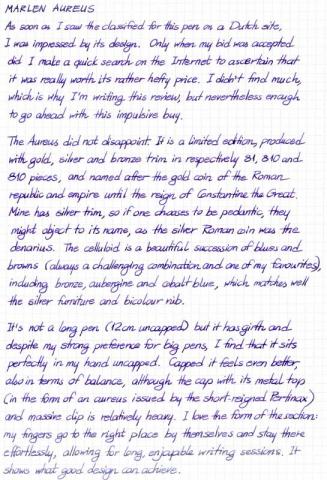 MARLEN AUREUS
As soon as I saw the classified for this pen on a Dutch site,
I was impressed by its design. Only when my bid was accepted
did I make a quick search on the Internet to ascertain that
it was really worth its rather hefty price. I didn't find much,
which is why I'm writing this review, but nevertheless enough
to go ahead with this impulsive buy.
The Aureus did not disappoint. It is a limited edition, produced
with gold, silver and bronze trim in respectively 81, 810 and
810 pieces, and named after the gold coin of the Roman
republic and empire until the reign of Constantine the Great.
Mine has silver trim, so if one chooses to be pedantic, they
might object to its name, as the silver Roman coin was the
denarius. The celluloid is a beautiful succession of blues and
browns (always a challenging combination and one of my favourites),
including bronze, aubergine and cobalt blue, which matches well
the silver furniture and bicolour nib.
It's not a long pen (12cm uncapped) but it has girth and
despite my strong preference for big pens, I find that it sits
perfectly in my hand uncapped. Capped it feels even better,
also in terms of balance, although the cap with its metal top
(in the form of an aureus issued by the short-reigned Pertinax)
and massive clip is relatively heavy. I love the form of the section:
my fingers go to the right place by themselves and stay there
effortlessly, allowing for long, enjoyable writing sessions. It
shows what good design can achieve.